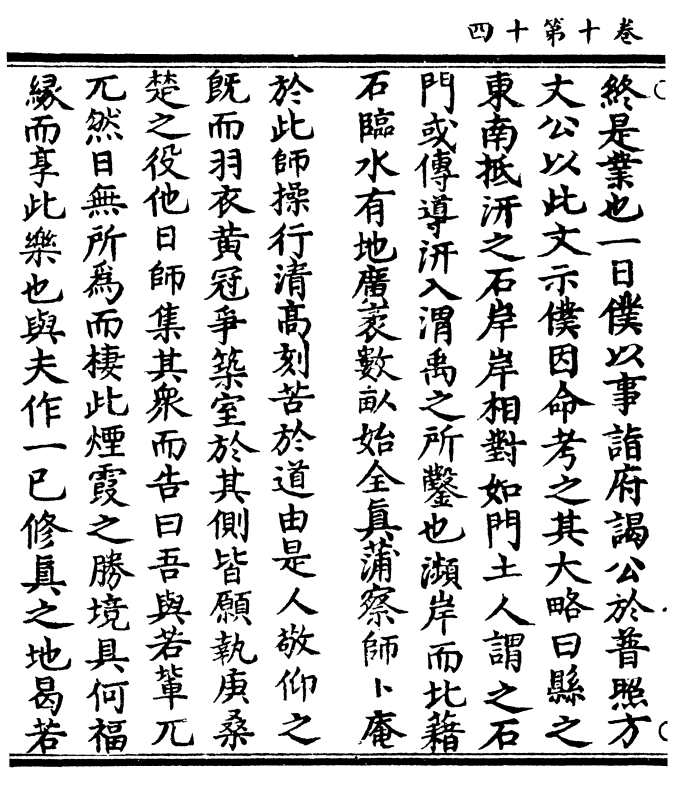 卷十第十四
終是業也一日僕以事詣府謁公於普照方
丈公以此文示僕因命考之其大略曰縣之
東南抵汧之石岸岸相對如門土人謂之石
門或傳導汧入渭禹之所鑿也瀕岸而北藉
石臨水有地廣袤數畝始全真蒲察師卜庵
於此師操行清高刻苦於道由是人敬仰之
既而羽衣黃冠爭築室於其側皆願執庚桑
楚之役他日師集其衆而告曰吾與若輩兀
兀然日無所爲而棲此煙霞之勝境具何福
緣而享此樂也與夫作一己修真之地曷若